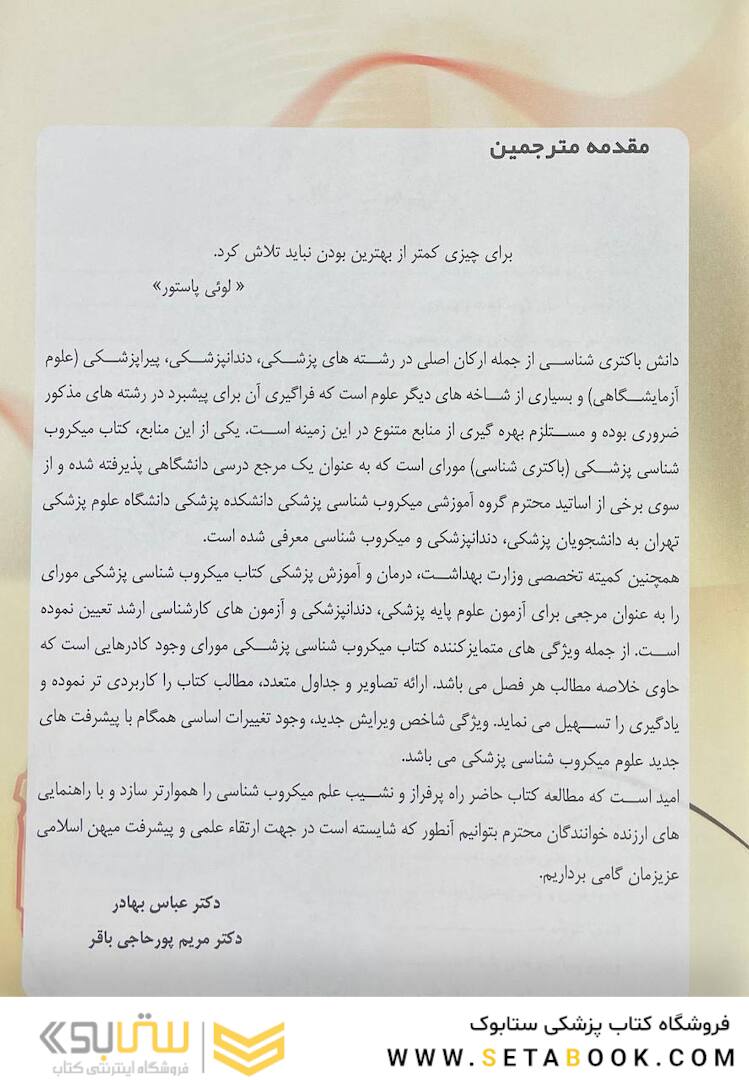 مقدمه مترجمین
برای چیزی کمتر از بهترین بودن نباید تلاش کرد.
« لوئی پاستور»
دانش باکتری شناسی از جمله ارکان اصلی در رشته های پزشکی، دندانپزشکی، پیراپزشکی (علوم
آزمایشگاهی) و بسیاری از شاخه های دیگر علوم است که فراگیری آن برای پیشبرد در رشته های مذکور
ضروری بوده و مستلزم بهره گیری از منابع متنوع در این زمینه است. یکی از این منابع، کتاب میکروب
شناسی پزشکی (باکتری شناسی) مورای است که به عنوان یک مرجع درسی دانشگاهی پذیرفته شده و از
سوی برخی از اساتید محترم گروه آموزشی میکروب شناسی پزشکی دانشکده پزشکی دانشگاه علوم پزشکی
تهران به دانشجویان پزشکی، دندانپزشکی و میکروب شناسی معرفی شده است.
همچنین کمیته تخصصی وزارت بهداشت، درمان و آموزش پزشکی کتاب میکروب شناسی پزشکی مورای
را به عنوان مرجعی برای آزمون علوم پایه پزشکی، دندانپزشکی و آزمون های کارشناسی ارشد تعیین نموده
است. از جمله ویژگی های متمایزکننده کتاب میکروب شناسی پزشکی مورای وجود کادرهایی است که
حاوی خلاصه مطالب هر فصل می باشد. ارائه تصاویر و جداول متعدد، مطالب کتاب را کاربردی تر نموده و
یادگیری را تسهیل می نماید. ویژگی شاخص ویرایش جدید، وجود تغییرات اساسی همگام با پیشرفت های
جدید علوم میکروب شناسی پزشکی می باشد.
امید است که مطالعه کتاب حاضر راه پرفراز و نشیب علم میکروب شناسی را هموارتر سازد و با راهنمایی
های ارزنده خوانندگان محترم بتوانیم آنطور که شایسته است در جهت ارتقاء علمی و پیشرفت میهن اسلامی
عزیزمان گامی برداریم.
دکتر عباس بهادر
دکتر مریم پورحاجی باقر
فروشگاه کتاب پزشکی ستابوک
WWW.SETABOOK.COM
ستابوک
فروشگاه اینترنتی کتاب